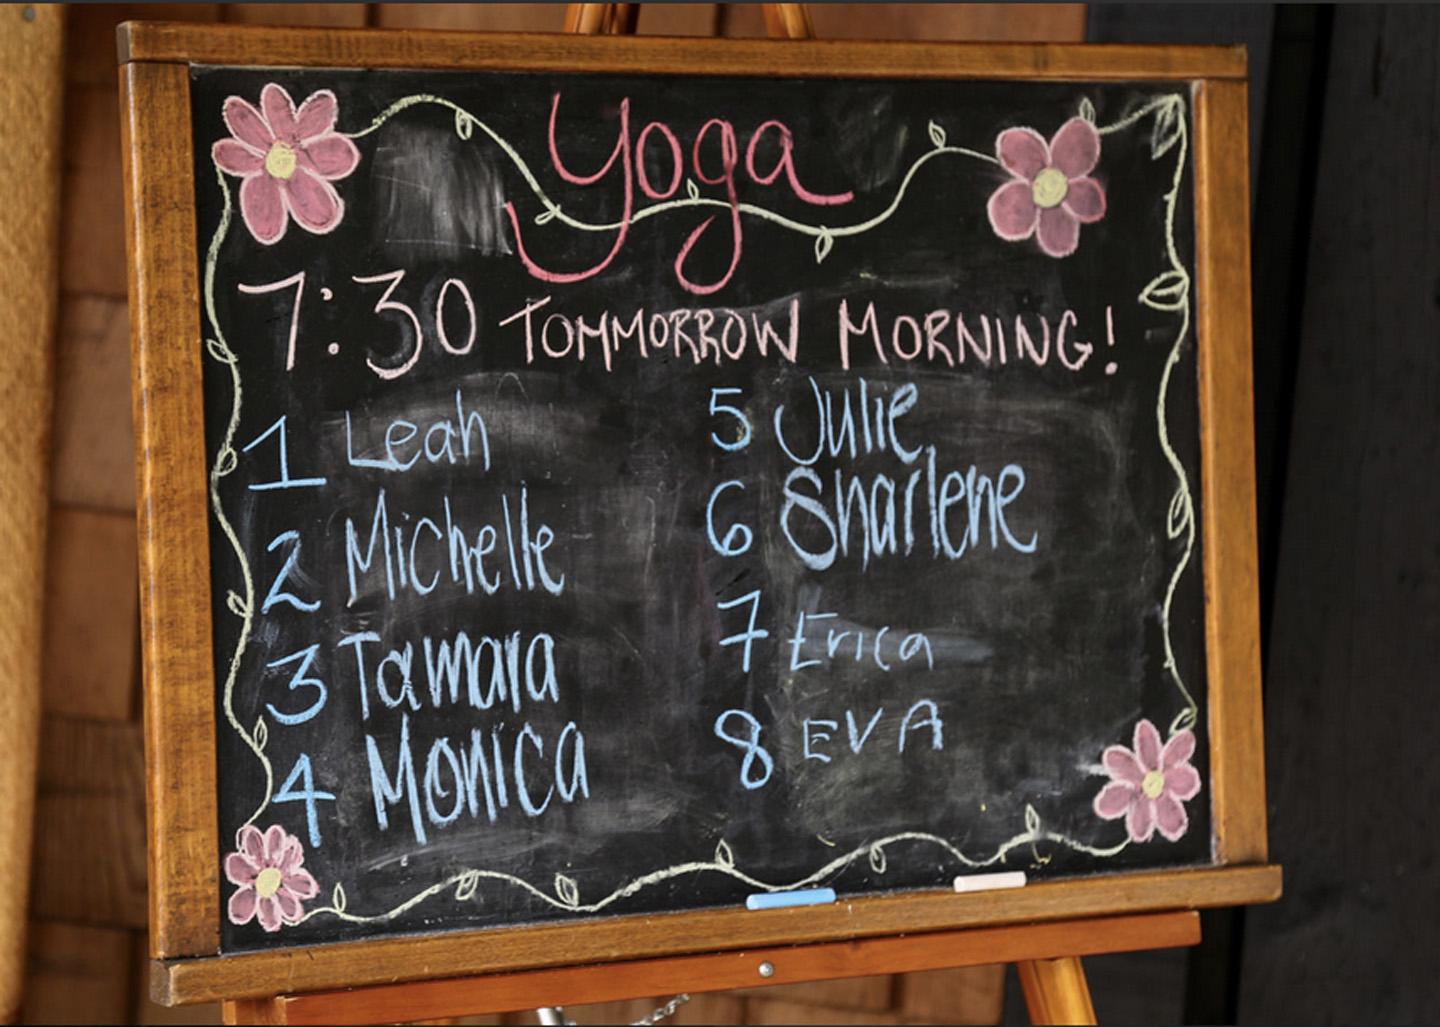 Yoga
7:30 TOMMORROW MORNING!
1 Leah
2 Michelle
3 Tamara
4 Monica
5 Julie
6 Sharlene
7 Erica
8 EVA